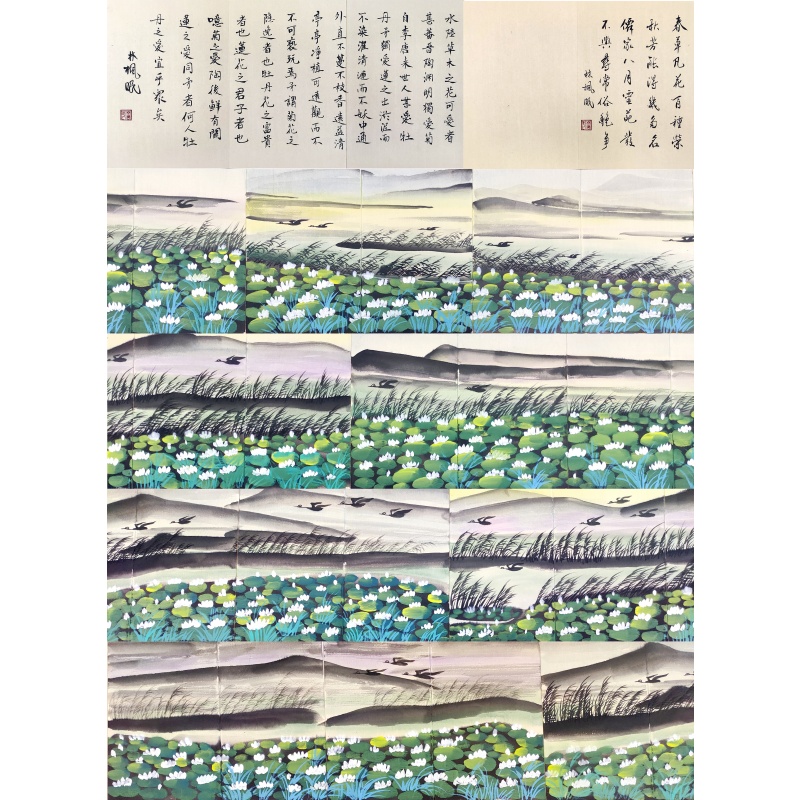 春華凡花百種榮
秋芳得名
僊家八月雲苑
不與尋常俗艷爭
林楓眠
水陸草木之花可愛者
甚蕃晉陶淵明獨愛菊
自李唐來世人甚愛牡
丹予獨愛蓮之出淤泥而
不染濯清漣而不妖中通
外直不蔓不枝香遠益清
亭亭淨植可遠觀而不
不可褻玩焉予謂菊花之
隱逸者也牡丹花之富貴
者也蓮花之君子者也
噫菊之愛陶後鮮有聞
蓮之愛同予者何人牡
丹之愛宜乎眾矣
林楓眠